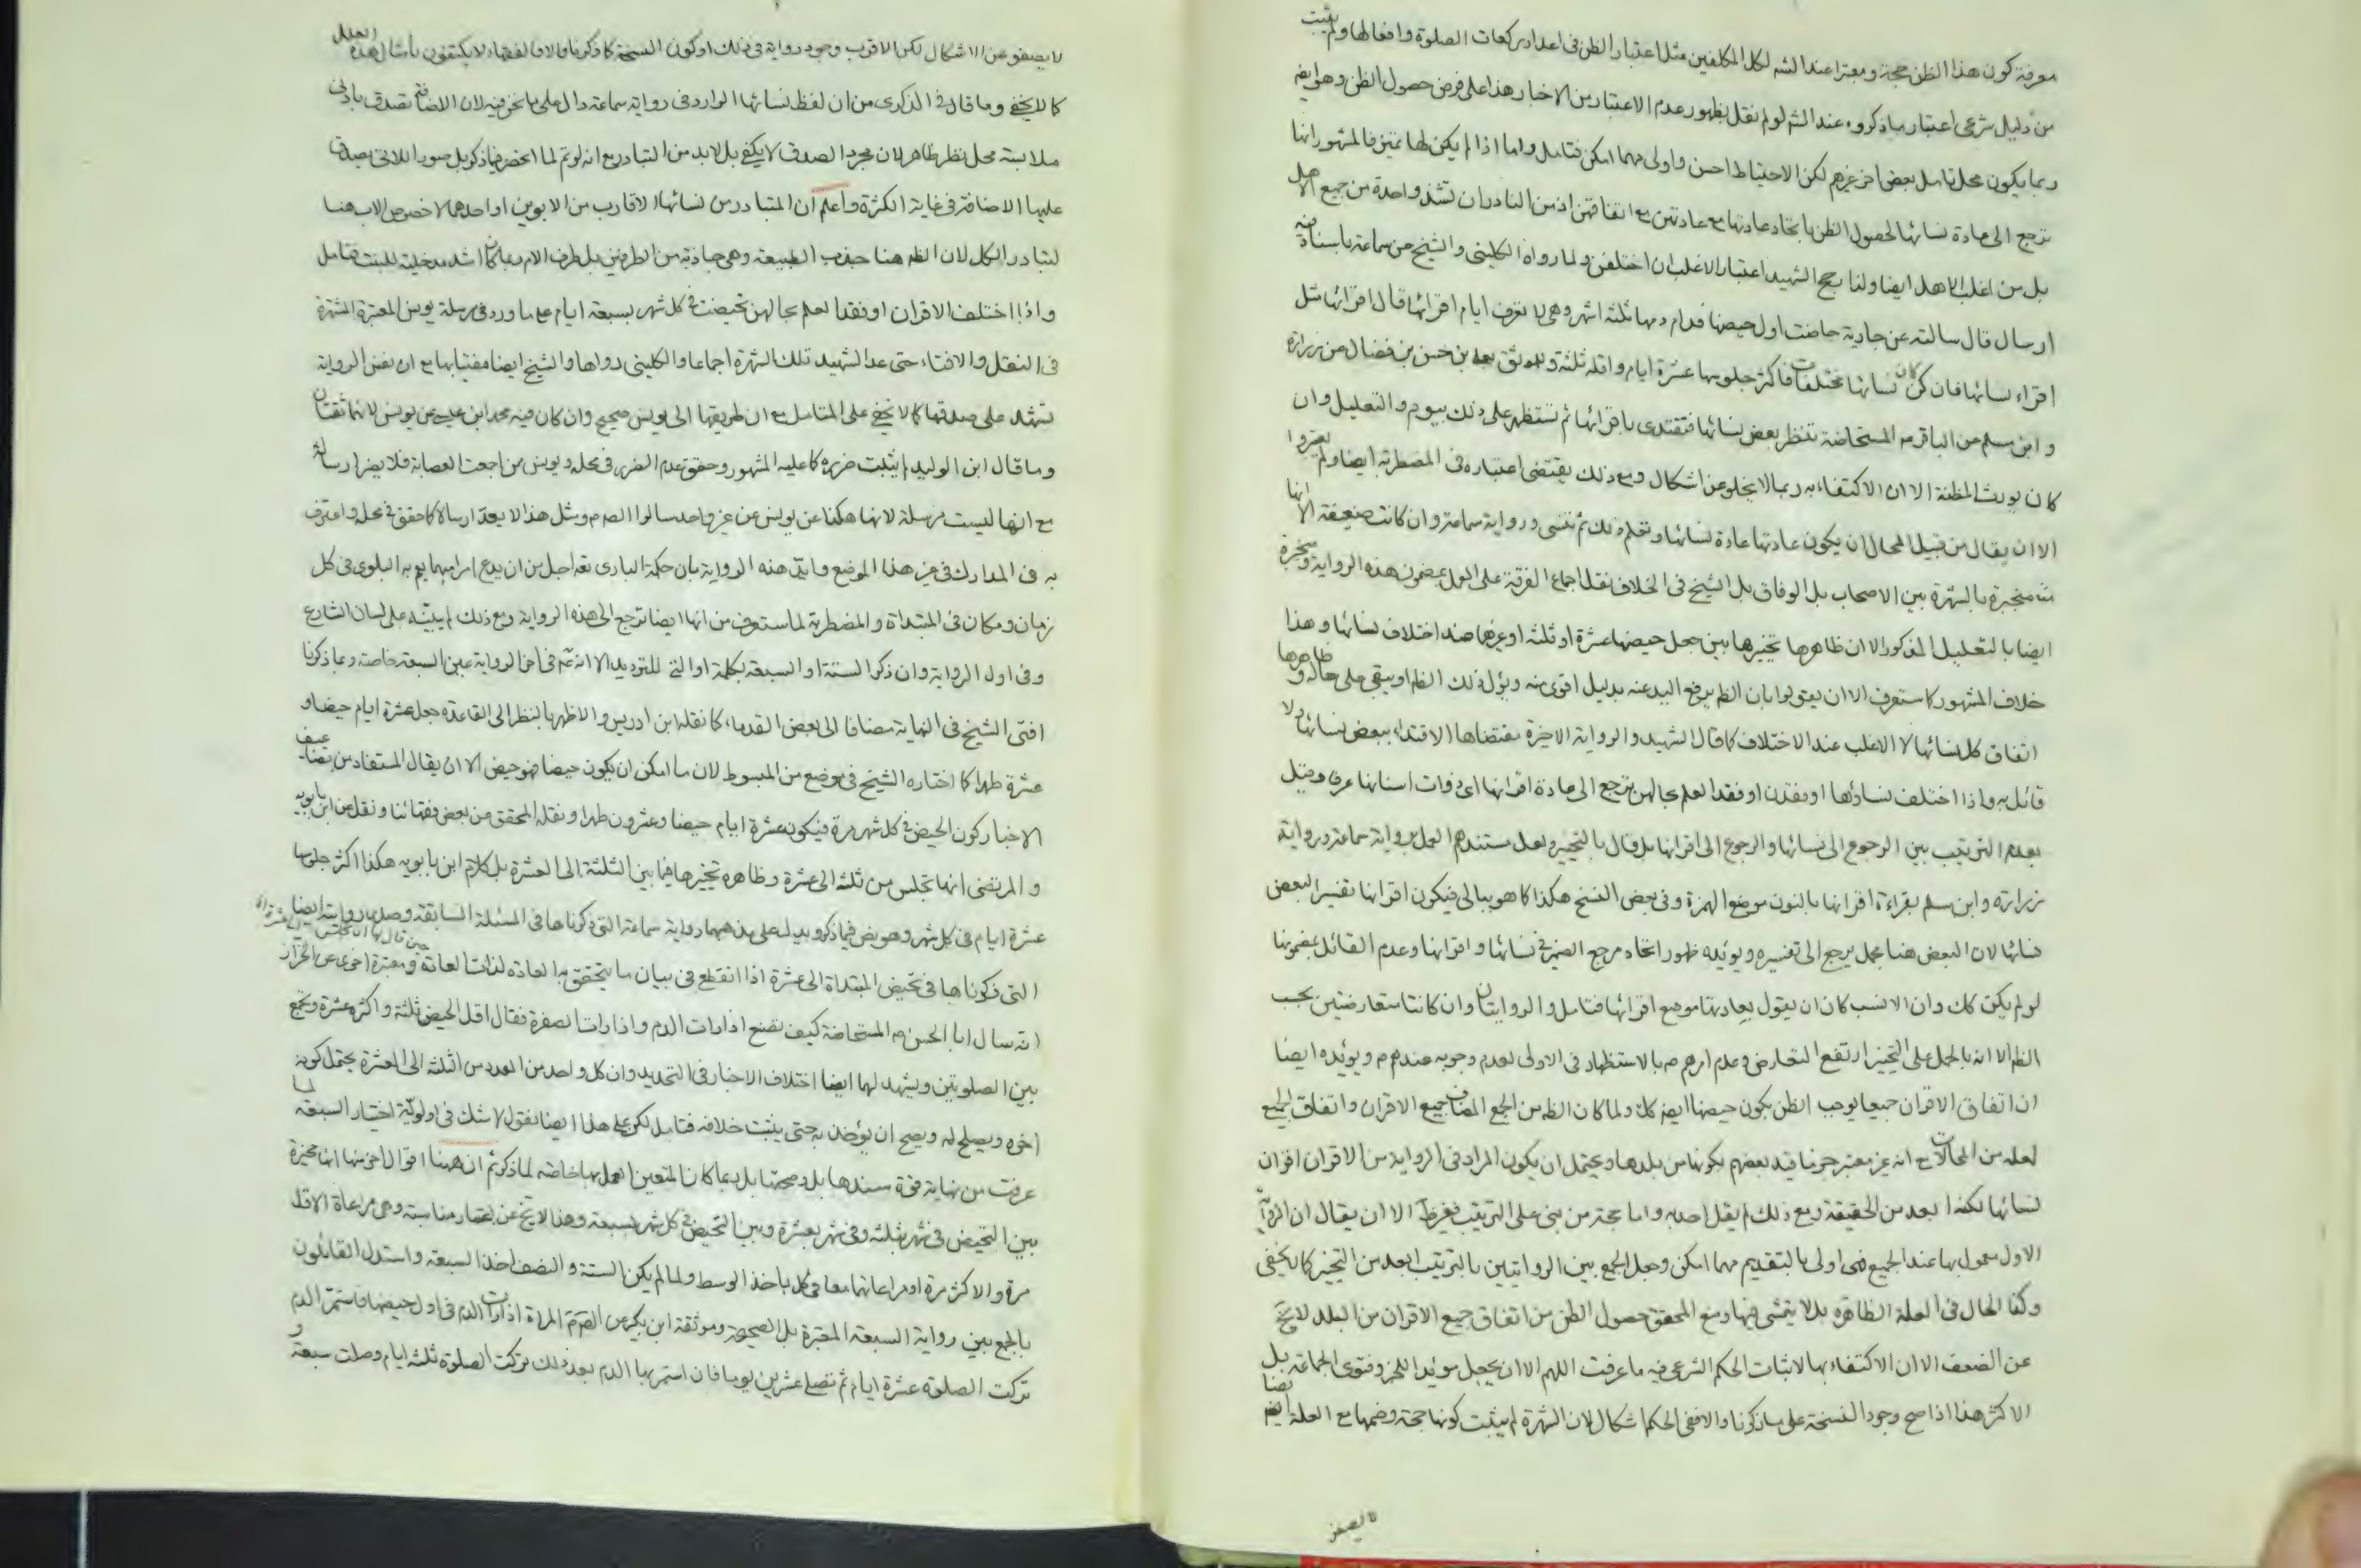 معرفة كون هذا الظن حجة ومعتبرا عند الشه لكل المكلفين مثل اعتبار الظن في اعداد ركعات الصلوة وافعالها ولم يثبت
من دليل شرعي اعتبار ما ذكروه عند الشه لو لم نقل بظهور عدم الاعتبار من الاخبار هذا على فرض حصول الظن وهو ايضا
ربما يكون محل تامل بعض اخر غيرهم لكن الاحتياط احسن واولى مهما امكن فتامل واما اذا لم يكن لها تميز فالمشهور انها
ترجع الى عادة نسائها لحصول الظن باتحاد عادتها مع عادتهن مع اتفاقهن اذ من النادر ان تشذ واحدة من جميع الاهل
بل من اغلب الاهل ايضا ولذا رجح الشهيد اعتبار الاغلب ان اختلفن ولما رواه الكليني والشيخ عن سماعة باسناد فيه
ارسال قال سالته عن جارية حاضت اول حيضها فدام دمها ثلثة اشهر وهي لا تعرف ايام اقرائها قال اقرائها مثل
اقراء نسائها فان كن نسائها مختلفات فاكثر جلوسها عشرة ايام واقله ثلثة ولموثق بن حسن بن فضال عن زرارة
وابن مسلم عن الباقر ع المستحاضة تنظر بعض نسائها فتقتدي باقرائها ثم تستظهر على ذلك بيوم والتعليل وان
كان يورث المظنة الا ان الاكتفاء به ربما لا يخلو عن اشكال ومع ذلك يقتضي اعتباره في المضطربة ايضا ولم يعتبروا
الا ان يقال من قبيل المحال ان يكون عادتها عادة نسائها وتعلم ذلك ثم تنسى ورواية سماعة وان كانت ضعيفة الا انها
منجبرة بالشهرة بين الاصحاب بل الوفاق بل الشيخ في الخلاف نقل اجماع الفرقة على العمل بمضمون هذه الرواية ومنجبرة
ايضا بالتعليل المذكور الا ان ظاهرها تخييرها بين جعل حيضها عشرة او ثلثة او غيرهما عند اختلاف نسائها وهذا
خلاف المشهور كما ستعرف الا ان يقولوا بان الظه يرفع اليد عنه بدليل اقوى منه ويؤل ذلك الظه او يبقى على حاله وظاهرها
اتفاق كل نسائها لا الاغلب عند الاختلاف كما قال الشهيد والرواية الاخيرة مقتضاها الاقتداء ببعض نسائها ولا
قائل به واذا اختلف نساؤها او فقدن او فقد العلم بحالهن ترجع الى عادة اقرانها اي ذوات اسنانها عرفا وقيل
بعدم الترتيب بين الرجوع الى نسائها والرجوع الى اقرانها بل قال بالتخيير ولعل مستندهم العمل برواية سماعة ورواية
زرارة وابن مسلم بقراءة اقرانها بالنون موضع الهمزة وفي بعض النسخ هكذا كما هو ببالي فيكون اقرانها تفسير البعض
نسائها لان البعض هنا مجمل يرجع الى تفسيره ويؤيده ظهور اتحاد مرجع الضمير في نسائها واقرانها وعدم القائل بمضمونها
لو لم يكن كك وان الانسب كان ان يقول بعادتها موضع اقرائها فتامل والروايتان وان كانتا متعارضتين بحسب
الظه الا انه بالحمل على التخيير ارتفع التعارض وعدم امرهم بالاستظهار في الاولى لعدم وجوبه عندهم ويؤيده ايضا
ان اتفاق الاقران جميعا يوجب الظن بكون حيضها ايضا كك ولما كان الظه من الجمع المضاف جميع الاقران واتفاق الجميع
لعله من المحالات مع انه غير معتبر جزما قيد بعضهم بكونها من بلدها ويحتمل ان يكون المراد في الرواية من الاقران اقران
نسائها لكنه ابعد من الحقيقة ومع ذلك لم يقل احد به واما حجة من بنى على الترتيب فغير ظه الا ان يقال ان الرواية
الاول معمول بها عند الجميع فهي اولى بالتقديم مهما امكن وجعل الجمع بين الروايتين بالترتيب ابعد من التخيير كما لا يخفى
وكذا الحال في العلة الظاهرة بل لا يتمشى فيها ومنع المحقق حصول الظن من اتفاق جميع الاقران من البلد لا يخ
عن الضعف الا ان الاكتفاء بها لاثبات الحكم الشرعي فيه ما عرفت اللهم الا ان يجعل مؤيدا للخبر وفتوى الجماعة بل
الاكثر هذا اذا صح وجود النسخة على ما ذكرنا والا ففي الحكم اشكال لان الشهرة لم يثبت كونها حجة وضمها مع العلة ايضا
لا يصفو
لا يصفو عن الاشكال لكن الاقرب وجود رواية في ذلك او كون النسخة كما ذكرنا والا فالفقهاء لا يكتفون بامثال هذه العلل
كما لا يخفى وما قال في الذكرى من ان لفظ نسائها الوارد في رواية سماعة دال على ما نحن فيه لان الاضافة تصدق بادنى
ملابسة محل نظر ظاهر لان مجرد الصدق لا يكفي بل لا بد من التبادر مع انه لو تم لما انحصر فيما ذكر بل صور اللاتي يصدق
عليها الاضافة في غاية الكثرة واعلم ان المتبادر من نسائها الاقارب من الابوين او احدهما لا خصوص الاب هنا
لتبادر الكل لان الظه هنا جذب الطبيعة وهي جاذبة من الطرفين بل طرف الام ربما كان اشد مدخلية للبنت فتامل
واذا اختلف الاقران او فقد العلم بحالهن تحيضت في كل شهر بسبعة ايام على ما ورد في مرسلة يونس المعتبرة المشتهرة
في النقل والافتاء حتى عد الشهيد تلك الشهرة اجماعا والكليني رواها والشيخ ايضا مفتيا بها مع ان نفس الرواية
تشهد على صدقها كما لا يخفى على المتامل مع ان طريقها الى يونس صحيح وان كان فيه محمد ابن عيسى عن يونس لانهما ثقتان
وما قال ابن الوليد لم يثبت ضرره كما عليه المشهور وحقق عدم الضرر في محله ويونس من اجمعت العصابة فلا يضر ارساله
مع انها ليست مرسلة لانها هكذا عن يونس عن غير واحد سالوا الصه ع ومثل هذا لا يعد ارسالا كما حقق في محله واعترف
به في المدارك في غير هذا الموضع وايد هذه الرواية بان حكمة الباري تعه اجل من ان يدع امرا مبهما يعم به البلوى في كل
زمان ومكان في المبتداة والمضطربة لما ستعرف من انها ايضا ترجع الى هذه الرواية ومع ذلك لم يبينه على لسان الشارع
وفي اول الرواية وان ذكر الستة او السبعة بكلمة او التي للترديد الا انه ع في اخر الرواية عين السبعة خاصة وبما ذكرنا
افتى الشيخ في النهاية مضافا الى بعض القدماء كما نقله ابن ادريس والاظهر بالنظر الى القاعدة جعل عشرة ايام حيضا و
عشرة طهرا كما اختاره الشيخ في موضع من المبسوط لان ما امكن ان يكون حيضا فهو حيض الا ان يقال المستفاد من تضاعيف
الاخبار كون الحيض في كل شهر مرة فيكون عشرة ايام حيضا وعشرون طهرا ونقله المحقق من بعض فقهائنا ونقل عن ابن بابويه
والمرتضى انها تجلس من ثلثة الى عشرة وظاهره تخييرها فيما بين الثلثة الى العشرة بل كلام ابن بابويه هكذا اكثر جلوسها
عشرة ايام في كل شهر وهو نص فيما ذكر ويدل على مذهبهما رواية سماعة التي ذكرناها في المسئلة السابقة وصدر روايته ايضا
التي ذكرناها في تحيض المبتداة الى عشرة اذا انقطع في بيان ما يتحقق به العادة لذات العادة ومعتبرة اخرى عن الخزاز
انه سال ابا الحسن ع المستحاضة كيف تصنع اذا رات الدم واذا رات الصفرة فقال اقل الحيض ثلثة واكثره عشرة وتجمع
بين الصلوتين ويشهد لها ايضا اختلاف الاخبار في التحديد وان كل واحد من العدد من الثلثة الى العشرة يحتمل كونه
اخره ويصلح له ويصح ان يؤخذ به حتى يثبت خلافه فتامل لكن على هذا ايضا نقول لا شك في اولوية اختيار السبعة لما
عرفت من نهاية قوة سندها بل وصحتها بل ربما كان المتعين العمل بها خاصة لما ذكر ثم ان ههنا اقوال اخر منها انها مخيرة
بين التحيض في شهر بثلثة وفي شهر بعشرة وبين التحيض في كل شهر بسبعة وهذا لا يخ عن اعتبار مناسبة وهي مراعاة الاقل
مرة والاكثر مرة او مراعاتهما معا في كل باخذ الوسط ولما لم يكن الستة والنصف اخذ السبعة واستدل القائلون
بالجمع بين رواية السبعة المعتبرة بل الصحيحة وموثقة ابن بكير عن الصه ع المراة اذا رات الدم في اول حيضها فاستمر الدم
تركت الصلوة عشرة ايام ثم تصلي عشرين يوما فان استمر بها الدم بعد ذلك تركت الصلوة ثلثة ايام وصلت سبعة و